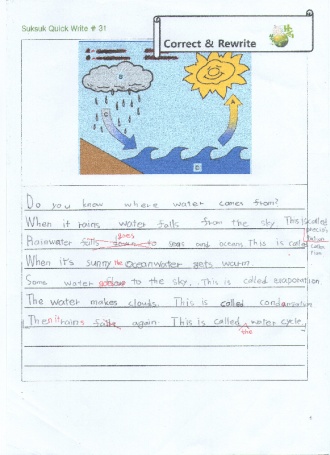 Suksuk Quick Write # 31
Correct & Rewrite
Do you know where water comes from?
When it rains water falls from the sky This is called
precipitation
Rainwater falls down to seas and oceans This is called
goes
Collection
When it's sunny the Oceanwater gets warm.
Some water to the sky. This is called evaporation
The water makes clouds. This is called condensation
Then it rains falls again. This is called water cycle.
the